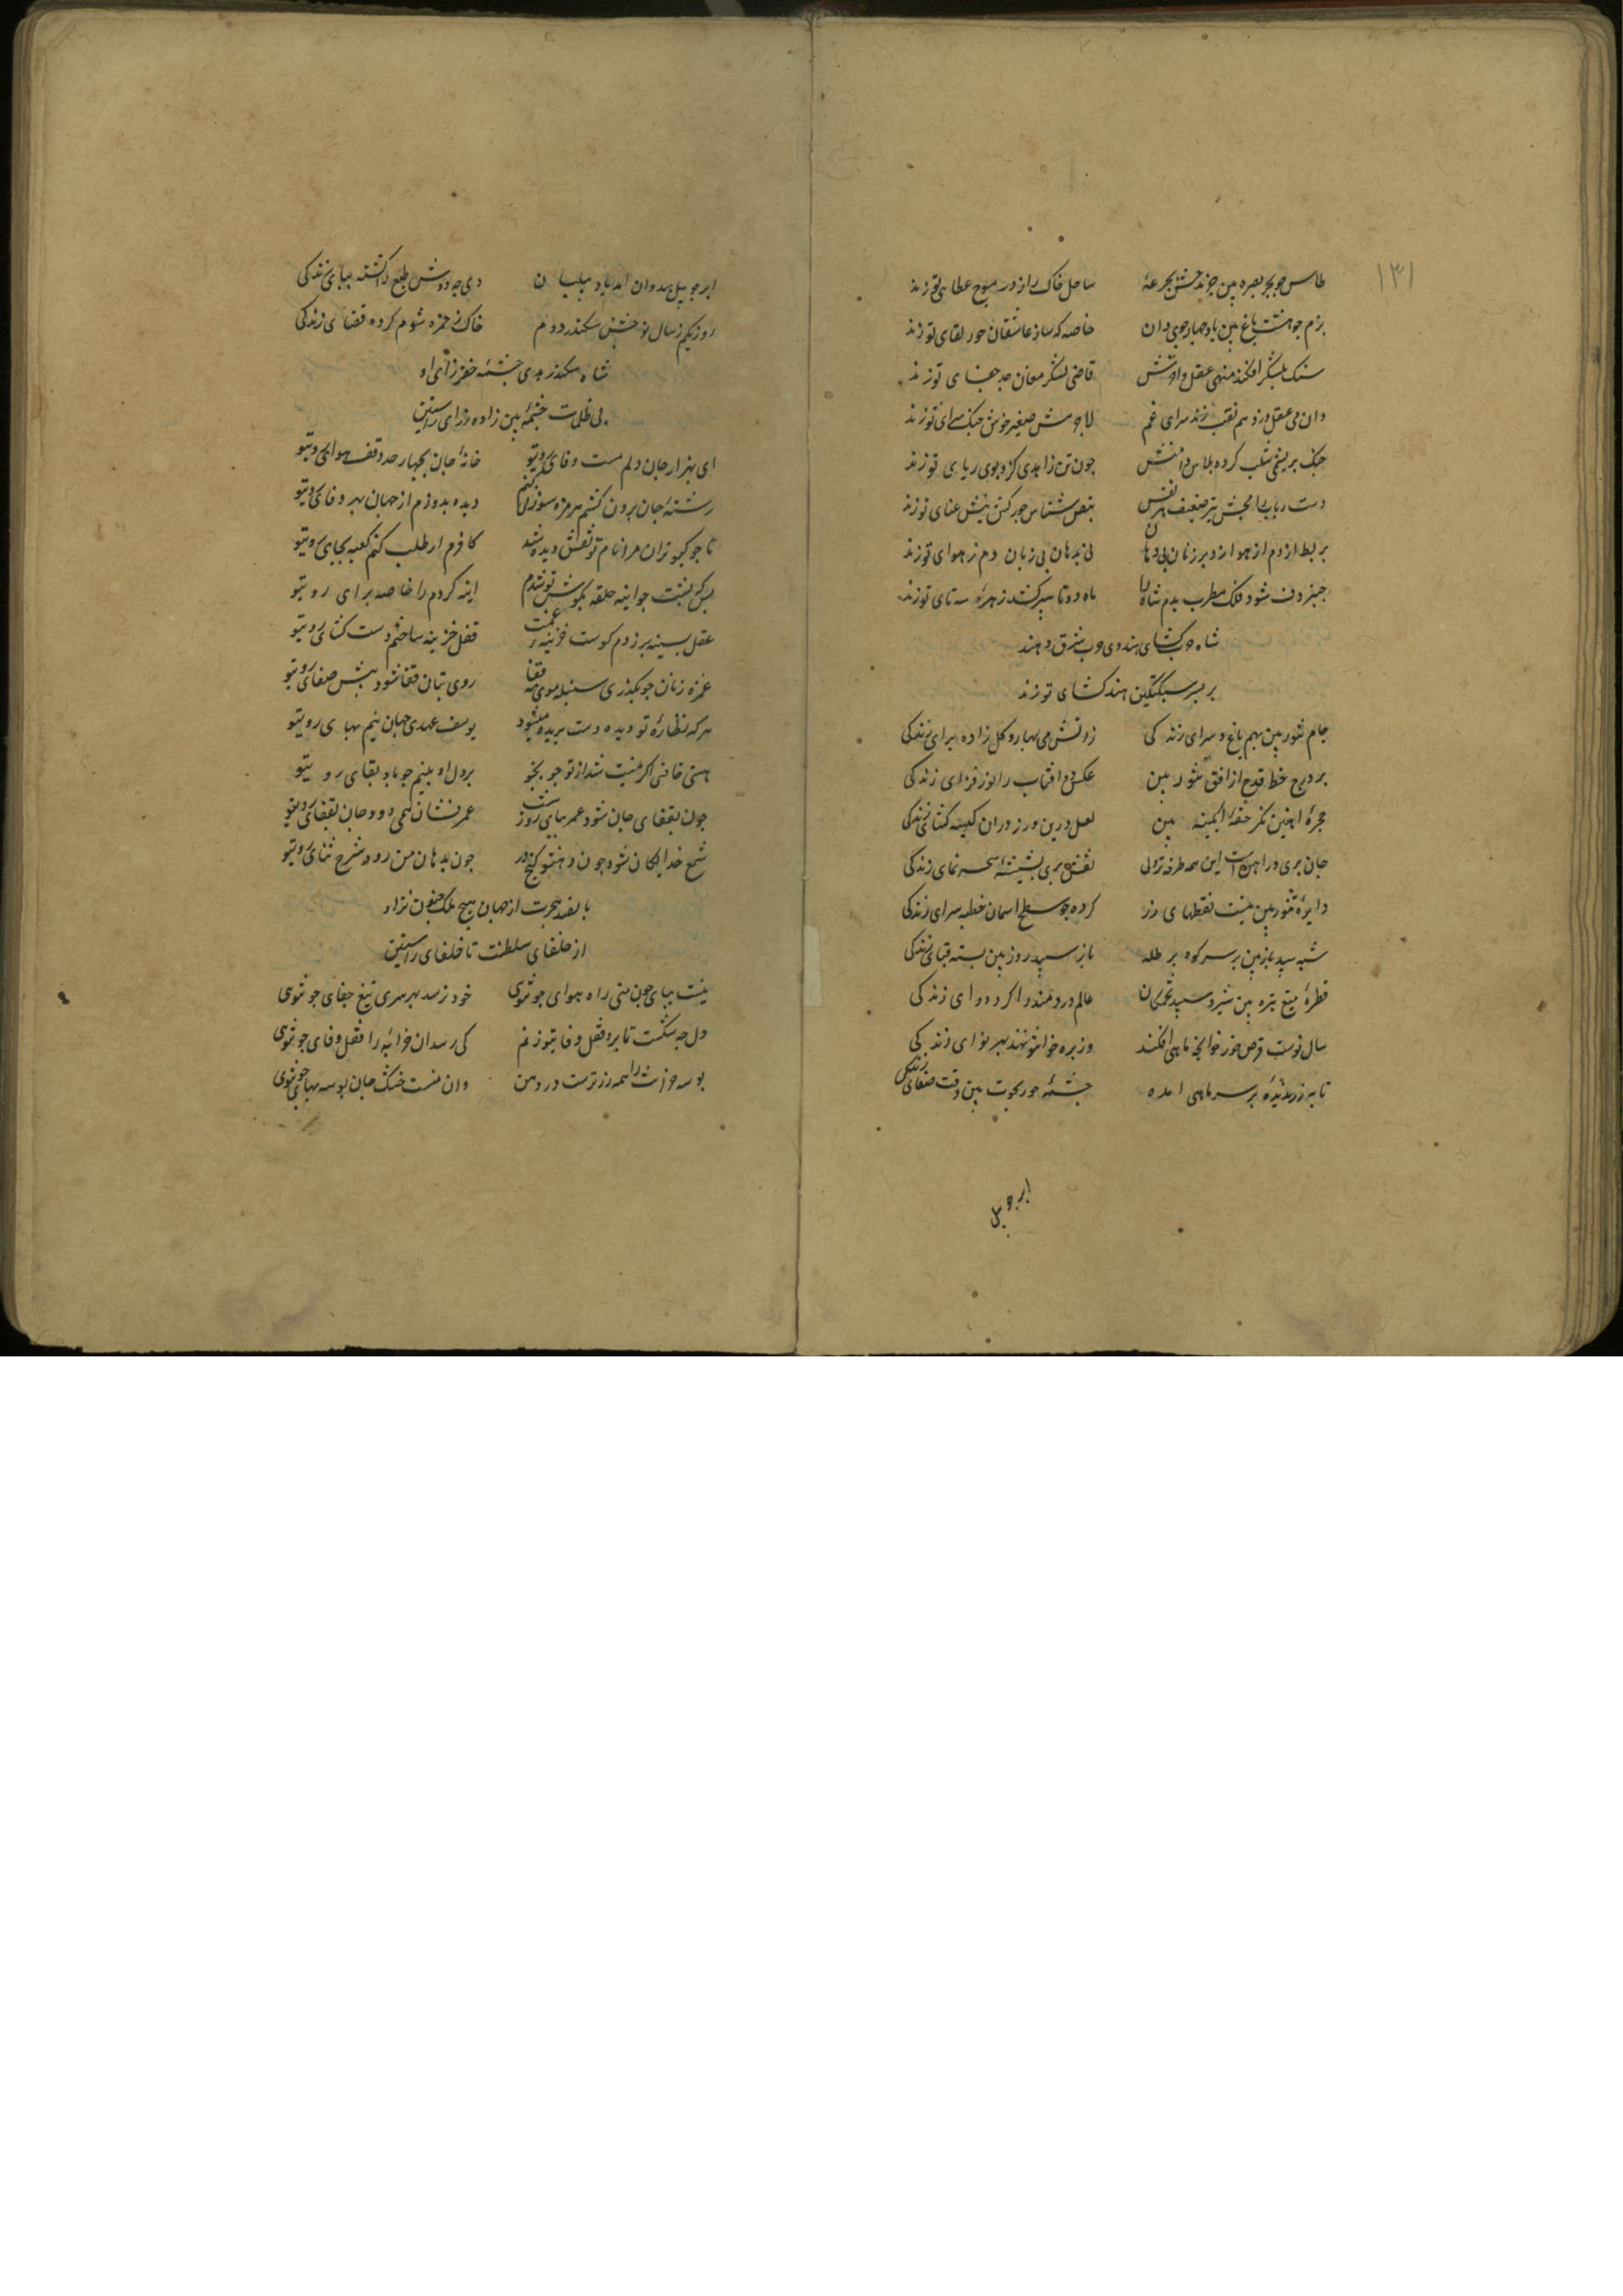 ۱۳۱
طاس چو بحر بصره بین جزر و مدش بجرعهٔ ساحل خاک را ز در موج عطای تو زند
بزم چو هشت باغ بین باده چهار جوی دان خاصه که ساز عاشقان حور لقای تو زند
سنک بلشکر افکند منهی عقل و اوتش قاضی لشکر مغان حد جفای تو زند
وان می عقل دزد هم نقب زند سرای غم لاجرمش صفیر خوش چنک سرای تو زند
چنک بریشمی سلب کرده پلاس دامنش چون تن زاهدی کزو بوی ریای تو زند
دست رباب را مجس تیز و ضعیف هر نفس نبض شناس بر رکش نیش عنای تو زند
بربط از دم از هوا زد بر زنان بی دهان نی بدهان بی زبان دم ز هوای تو زند
چنبر دف شود فلک مطرب بزم شاه را ماه دو تا سپر کشد زهره سه تای تو زند
شاه عرب کشای هندوی عرب شرق و هند
بر پسر سبکتکین هند کشای تو زند
جام تنور بین بهم باغ و سرای زندکی زاتش می بهار و کل زاده برای زندکی
بر درج خط قدح از افق تنور بین عکس دو افتاب را نور فزای زندکی
حجرهٔ اهنین نکر حقهٔ ابکینه بین لعل درین و زر دران کیسه کشای زندکی
جان پری در اهن است این همه طرفه تر ولی نقش پری بشیشه سحر نمای زندکی
دایرهٔ تنور بین نیست نقطهای زر کرده چو سطح اسمان خطه سرای زندکی
شبه سپید باز بین بر سر کوه بر طله باز سپید روز بین بسته قبای زندکی
قطرهٔ میغ تیره بین شیر و سپید تخمکان عالم دردمند را کرده دوای زندکی
سال نوست قرص خور خوانچهٔ ماهی افکند وز بره خوانتو نهند بهر نوای زندکی
تابه زر ندیدهٔ بر سر ماهی امده چشمهٔ خور بحوت بین وقت صفای زندکی
ابر چو پیل
ابر چو پیل هندوان امد باد پیلبان دی چه دوش طبع را کشته بپای زندکی
روز یکم ز سال نو جشن سکندر دوم خاک ز جرعه شوم کرده قضای زندکی
شاه سکندر هدی چشمه خضر رای او
بی ظلمات چشمهٔ بین زاده ز رای راستین
ای بهزار جان دلم مست وفای روی تو خانهٔ جان بچهار حد وقف هوای روی تو
رشتهٔ جان برون کشم هر مژه سوزنی کنم دیده بدوزم از جهان بهر وفای روی تو
تا چو کبوتران مرا نام تو نقش دیده شد کافرم ار طلب کنم کعبه بجای روی تو
پس که نشست چو اینه حلقه بکوش تو شدم اینه کردم راخاصه برای روی تو
عقل بسینه بر زدم کوست خزینه غمت قفل خزینه ساختم دست کشای روی تو
غمزه زنان چو بکذری سنبله موی مه قفا روی بتان قفا شود پیش صفای روی تو
هر که نظارهٔ تو دید دست بریده میشود یوسف عهدی جهان نیم بهای روی تو
هستی خاقانی اکر نیست شد از تو جو بجو بر دل او به نیم جو باد بقای روی تو
چون بقفای جان شود عمر بپای روز شب عمر نشان همی دود جان بقفای روی تو
شمع خدایکان شود چون دهنتو کنج در چون بدهان من رود شرح ثنای روی تو
با لقب هجرت از جهان هیچ ملک چنون نزاد
از خلفای سلطنت تا خلفای راستین
نیست بپای چون منی راه هوای چو توی خود نرسد بهر سری تیغ جفای چو توی
دل چه سکست تا برو قفل وفا بتو زنم کی رسد ان خرابه را قفل وفای چو توی
بوسه خرانت را همه زر ترست در دهن وان منست خشک جان بوسه بهای چو توی